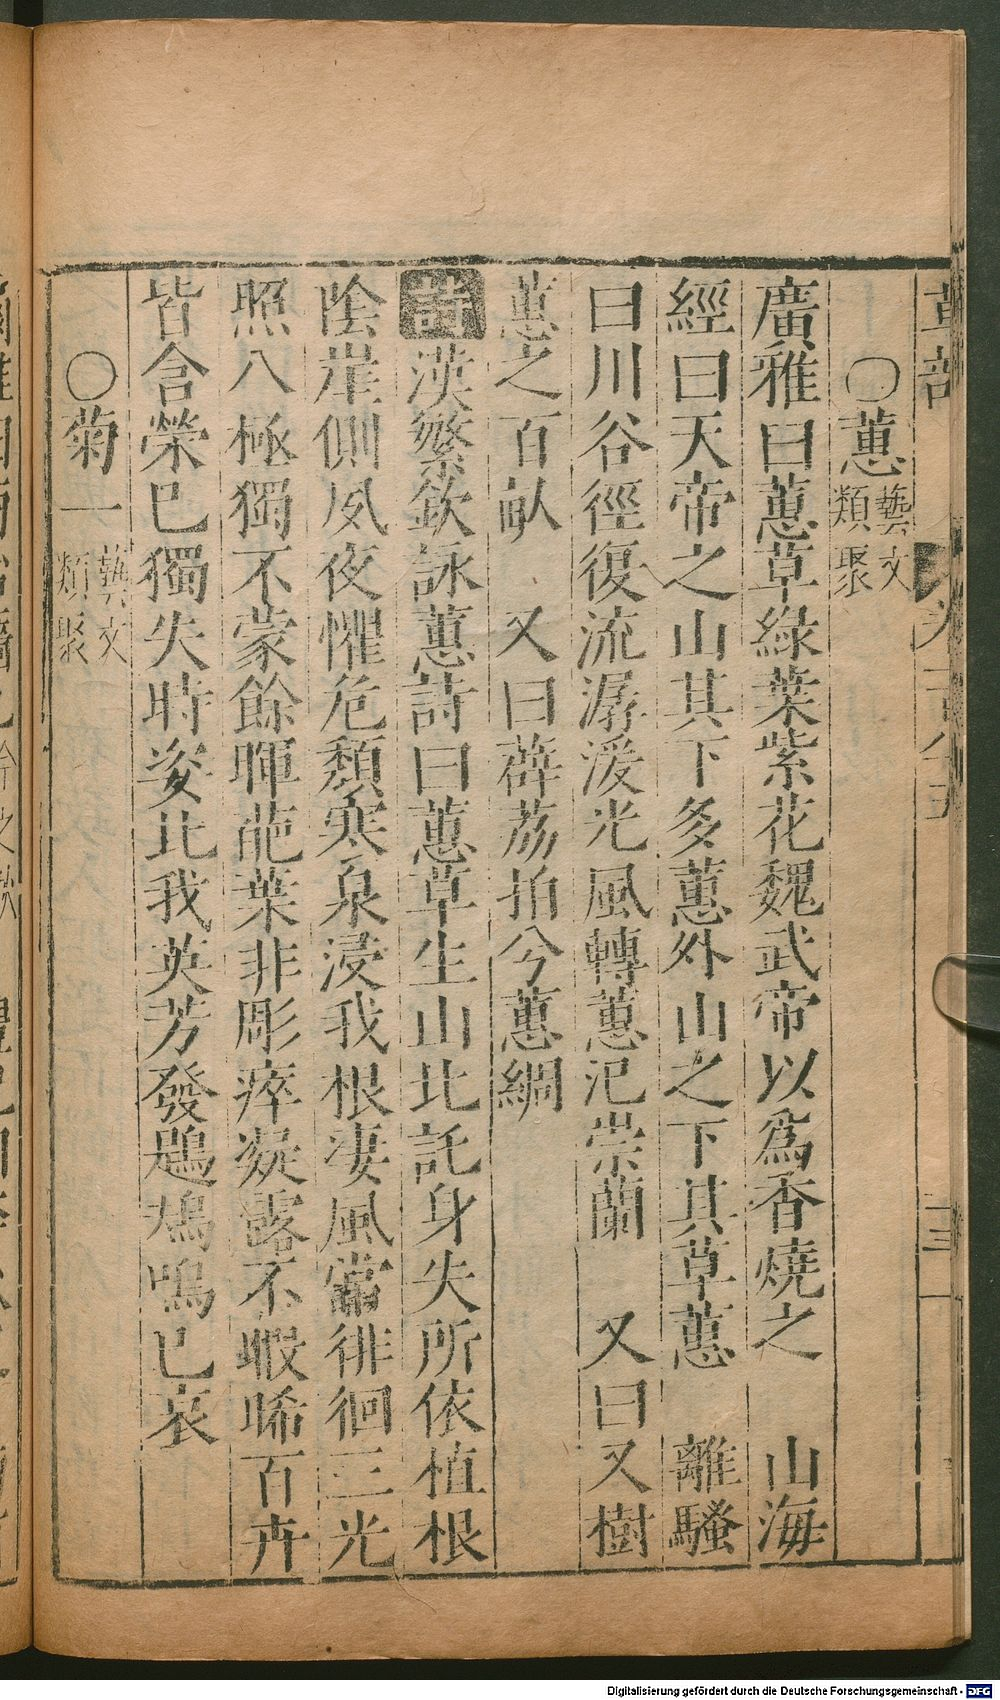 ○蕙藝文類聚
廣雅曰蕙草綠葉紫花魏武帝以爲香燒之　山海
經曰天帝之山其下多蕙外山之下其草蕙　離騷
曰川谷徑復流潺湲光風轉蕙氾崇蘭　又曰又樹
蕙之百畝　又曰薜荔拍兮蕙綢
詩漢繁欽詠蕙詩曰蕙草生山北託身失所依植根
陰崖側夙夜懼危頹寒泉浸我根淒風常徘徊三光
照八極獨不蒙餘暉葩葉非彫瘁凝露不暇晞百卉
皆含榮已獨失時姿比我英芳發鶗鴂鳴已哀
○菊一藝文類聚
Digitalisierung gefördert durch die Deutsche Forschungsgemeinschaft - DFG